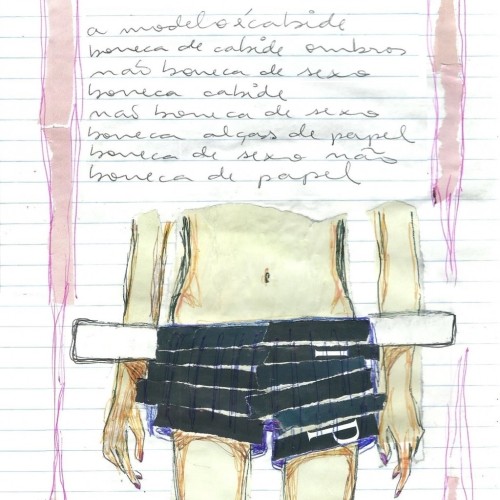 a modelo é cabide
boneca de cabide ombros
não boneca de sexo
boneca cabide
não boneca de sexo
boneca alças de papel
boneca de sexo não
boneca de papel